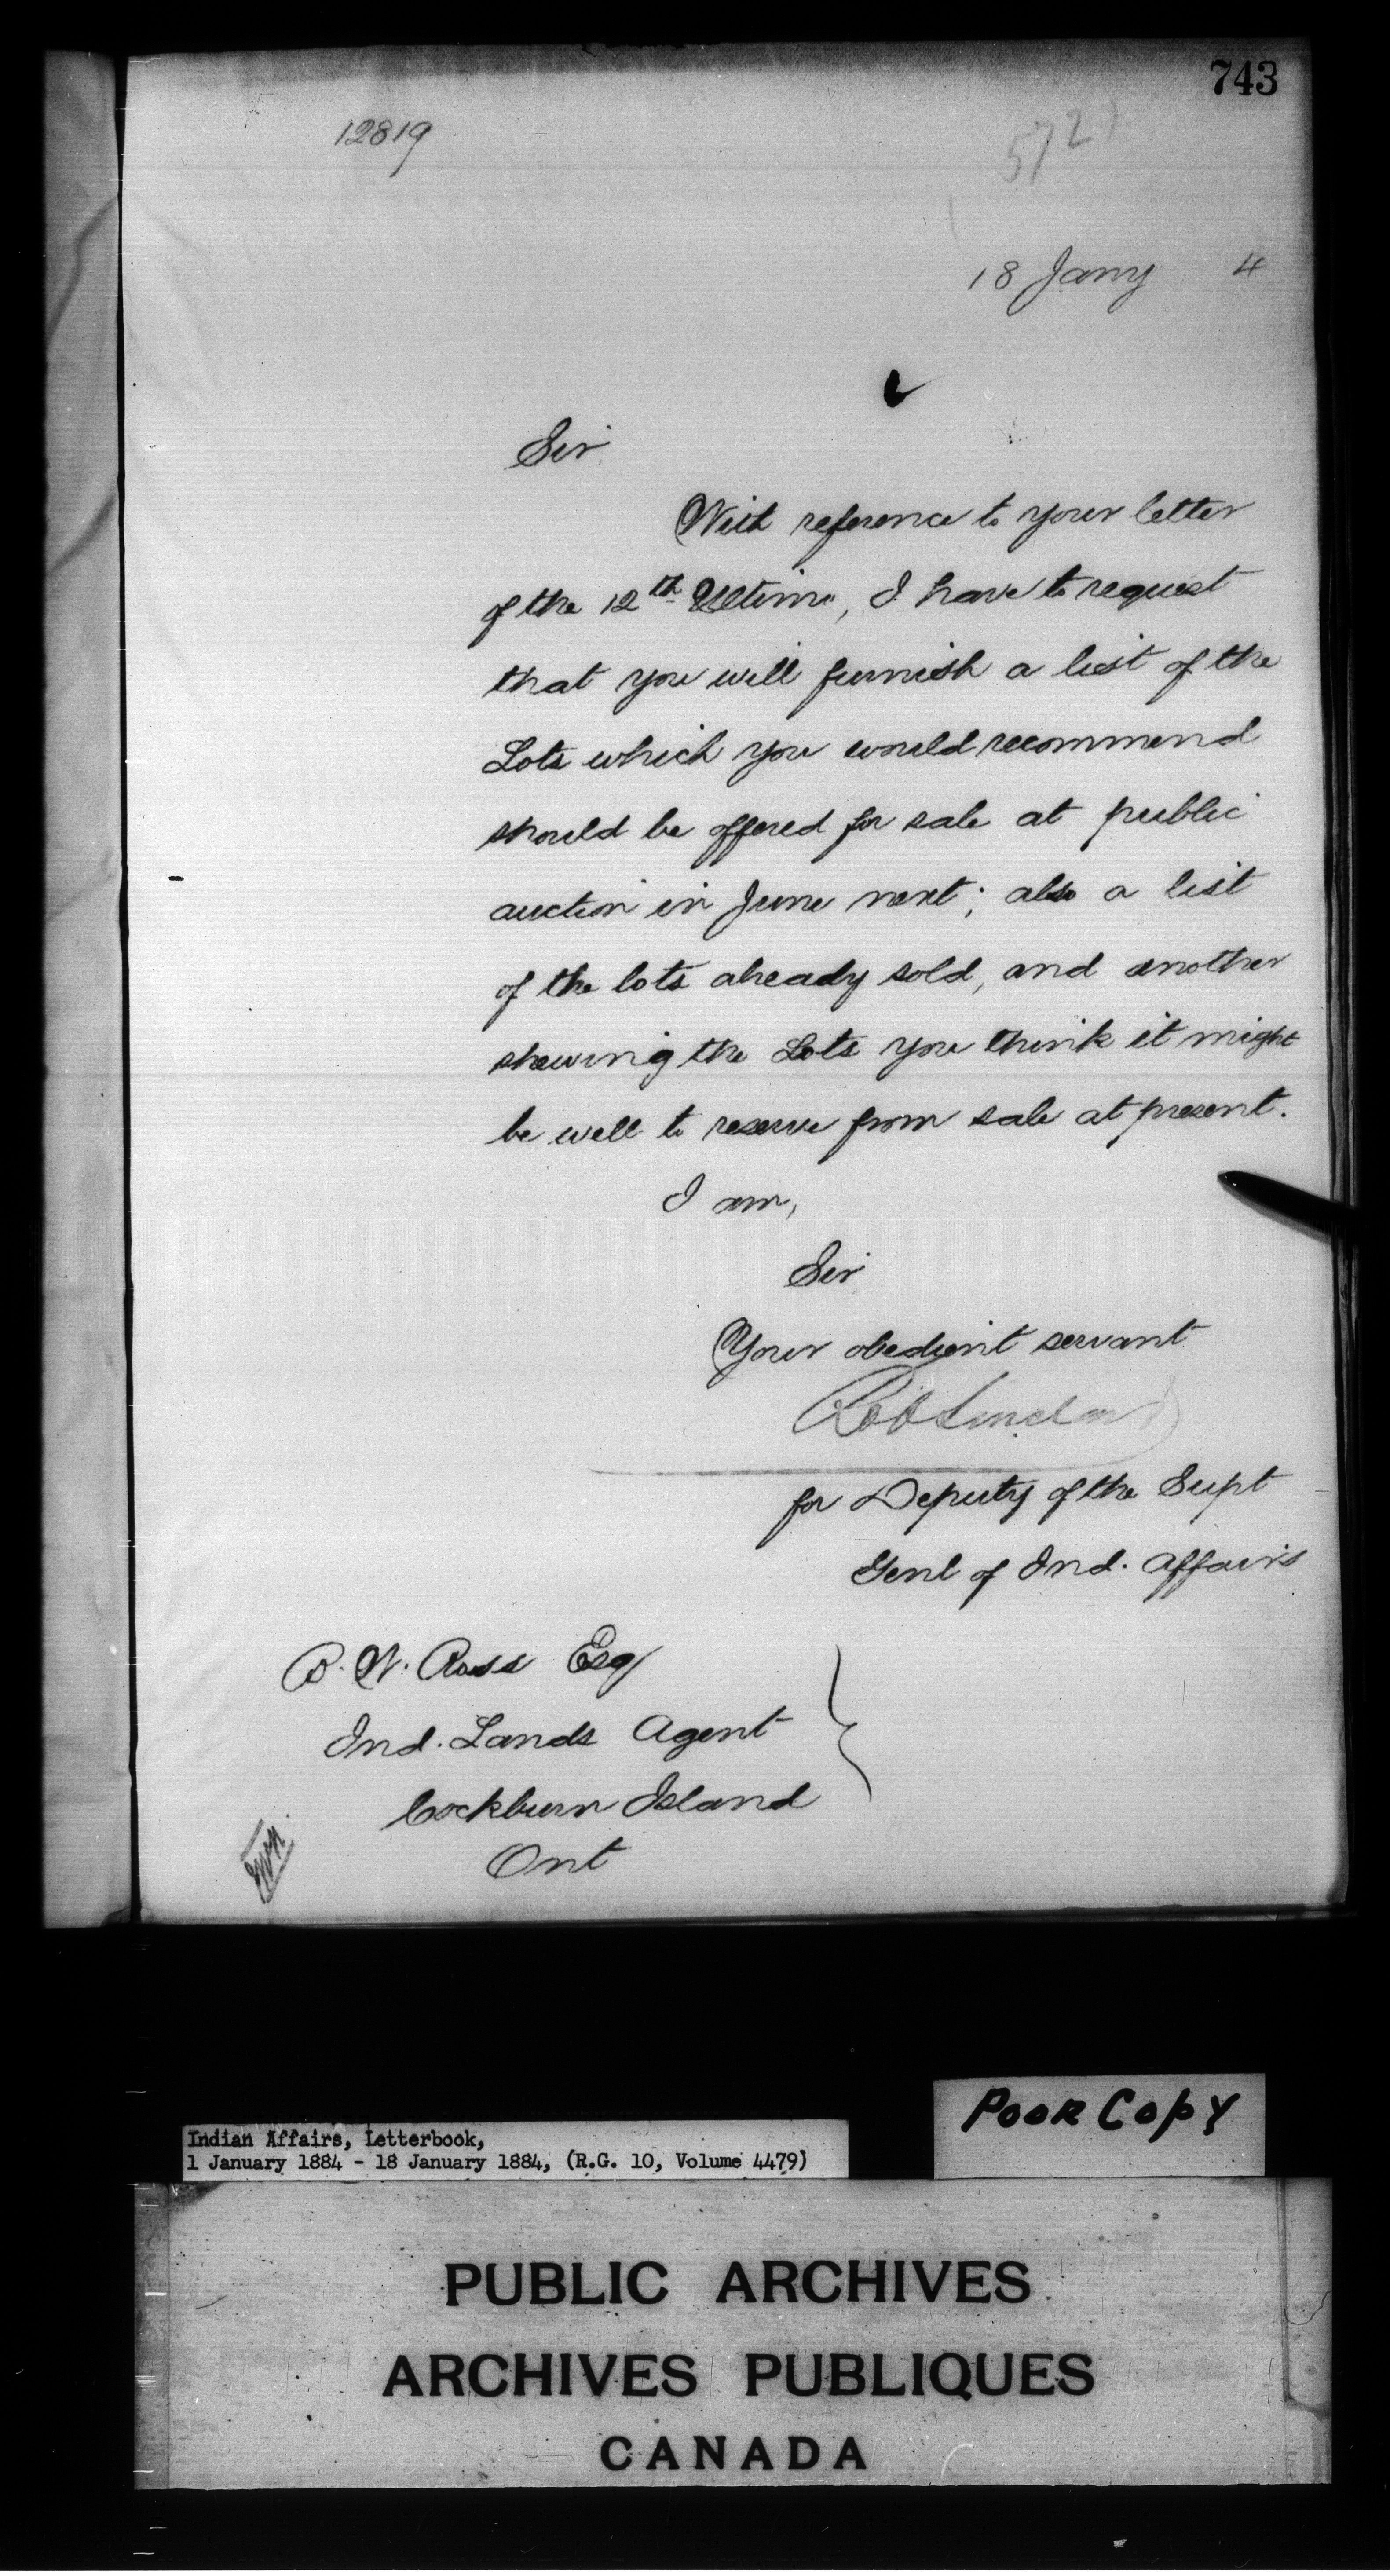 743
12819
572
18 Jany 4
Sir
With reference to your letter
of the 12th Ultimo, I have to request
that you will furnish a list of the
Lots which you would recommend
should be offered for sale at public
auction in June next; also a list
of the lots already sold, and another
shewing the Lots you think it might
be well to reserve from sale at present.
I am,
Sir
Your obedient servant
Rob Sinclair
for Deputy of the Supt
Genl of Ind. Affairs
B. W. Ross Esq
Ind. Lands Agent
Cockburn Island
Ont
Indian Affairs, Letterbook,
1 January 1884 - 18 January 1884, (R.G. 10, Volume 4479)
Poor Copy
PUBLIC ARCHIVES
ARCHIVES PUBLIQUES
CANADA